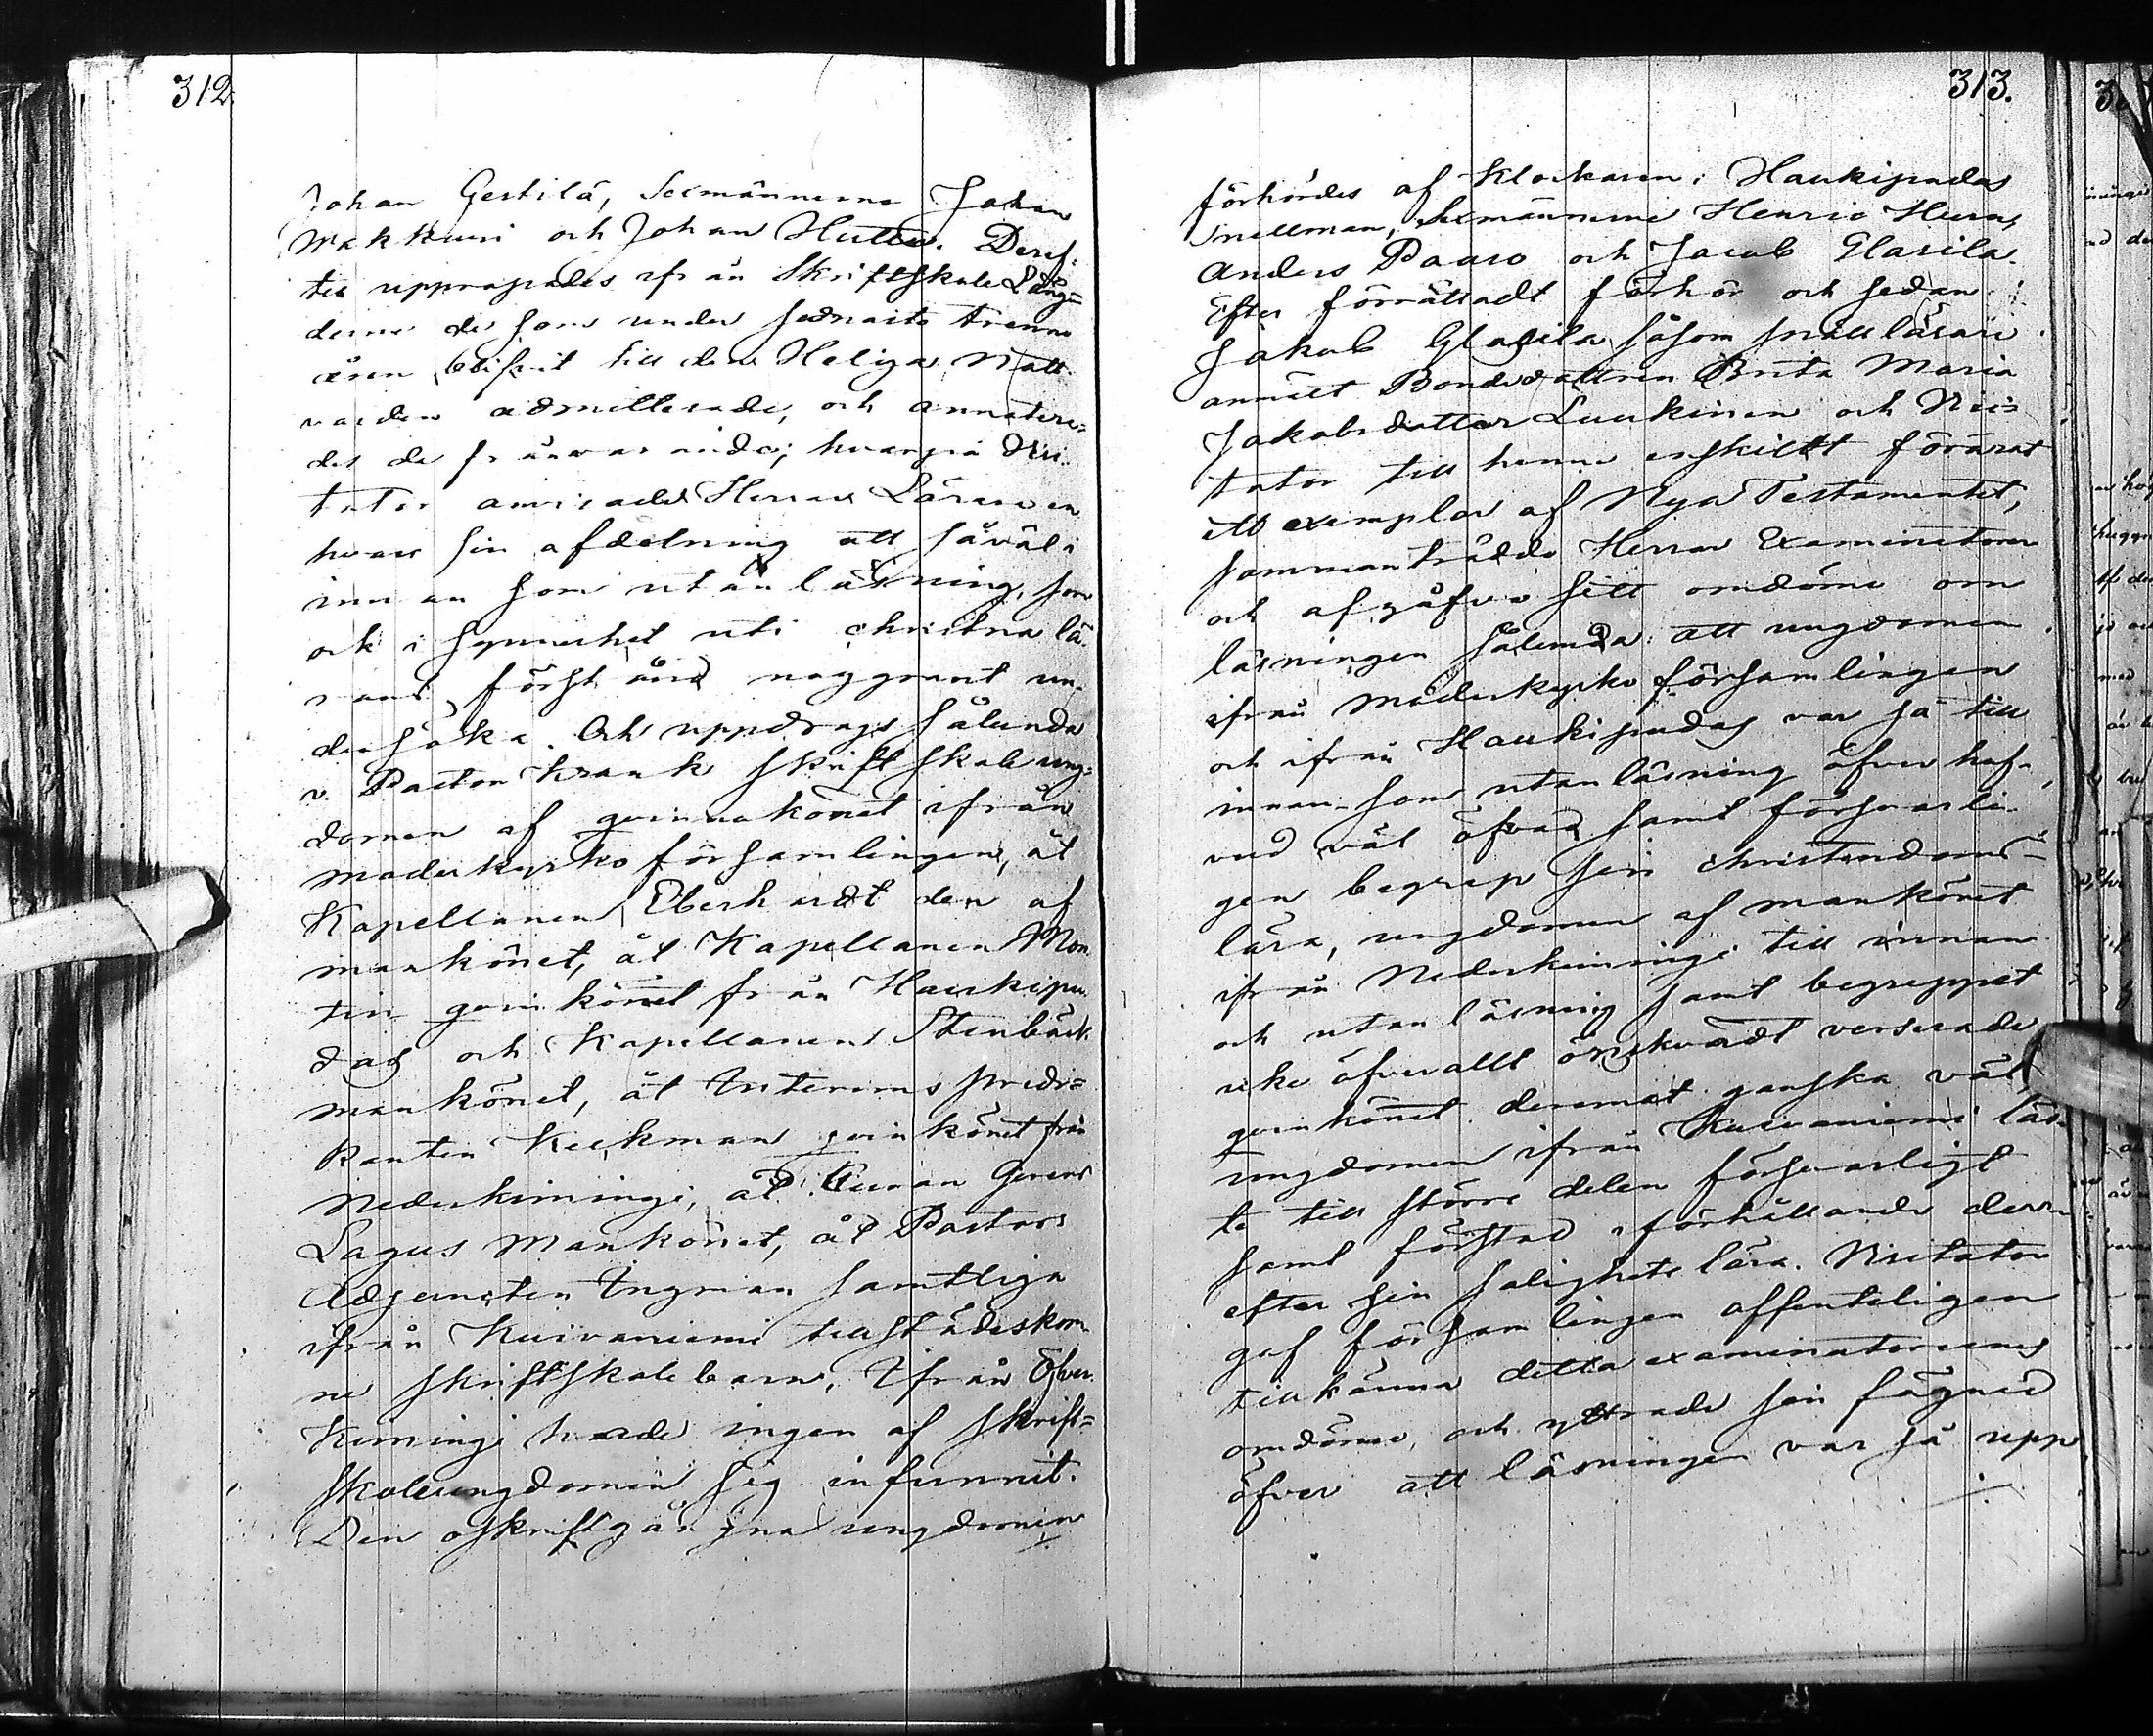 312.
Johan Gestilä, Sexmännerne Johan
Makkuri och Johan Hutta. Deref-
ter upprapades ifrån Skriftskole Läng-
derne de som under sednaste trenne
åren blifvit till den Heliga Natt
varden admitterade, och annotera-
des de frånvarande; hvarpå Visi-
tator anvisade Herrar Lärare en
hvar sin afdelning att såväl i
innan som utanläsning, som
ock i synnerhet uti christna lä-
rans förstånd noggrant un-
dersöka. Och uppdrags sålunda
v. Pastor Krank skriftskole ung-
domen af qvinnokönet ifrån
moderkyrko församlingen, åt
Kapellanen Eberhardt den af
mankönet, åt Kapellanen Mon-
tin qvinkönet från Haukipu-
das och Kapellanen Stenbäck
mankönet, åt Interims predi-
kanten Keckman qvinkönet från
Nederkiminge, åt Curam Gerens
Lagus Mankönet, åt Pastors
Adjuncten Ingman samtliga
ifrån Kuivaniemi tillstädeskom-
ne skriftskolebarn. Ifrån Öfver
Kiminge hade ingen af skrift-
skoleungdomen sig infunnit.
Den oskriftgångna ungdomen
313.
förhördes af Klockaren i Haukipudas
Snellman, Sexmännerne Henric Hura,
Anders Paaso och Jacob Glasila.
Efter förrättadt förhör och sedan
Jakob Glasila såsom snäll läsare
anmält Bondedottren Brita Maria
Jakobsdotter Luukinen och Visi-
tator till henne enskildt förärat
ett exemplar af Nya Testamentet,
sammanträdde Herrar Examinatorer
och afgåfvo sitt omdöme om
läsningen sålunda: att ungdomen
ifrån moderkyrko församlingen
och ifrån Haukipudas var så till
innan- som utanläsning öfver huf-
vud väl öfvad samt försvarli-
gen begrep sin christendoms-
lära, ungdomen af mankönet
ifrån Nederkiminge till innan
och utanläsning samt begreppet
icke öfverallt önskvärdt verserade
qvinkönet deremot ganska väl,
ungdomen ifrån Kuivaniemi läs-
te till större delen försvarligt
samt förstod i förhållande der-
efter sin salighets lära. Visitator
gaf församlingen offenteligen
tillkänna detta examinatorernes
omdöme, och yttrade sin fägnad
öfver att läsningen var så upp